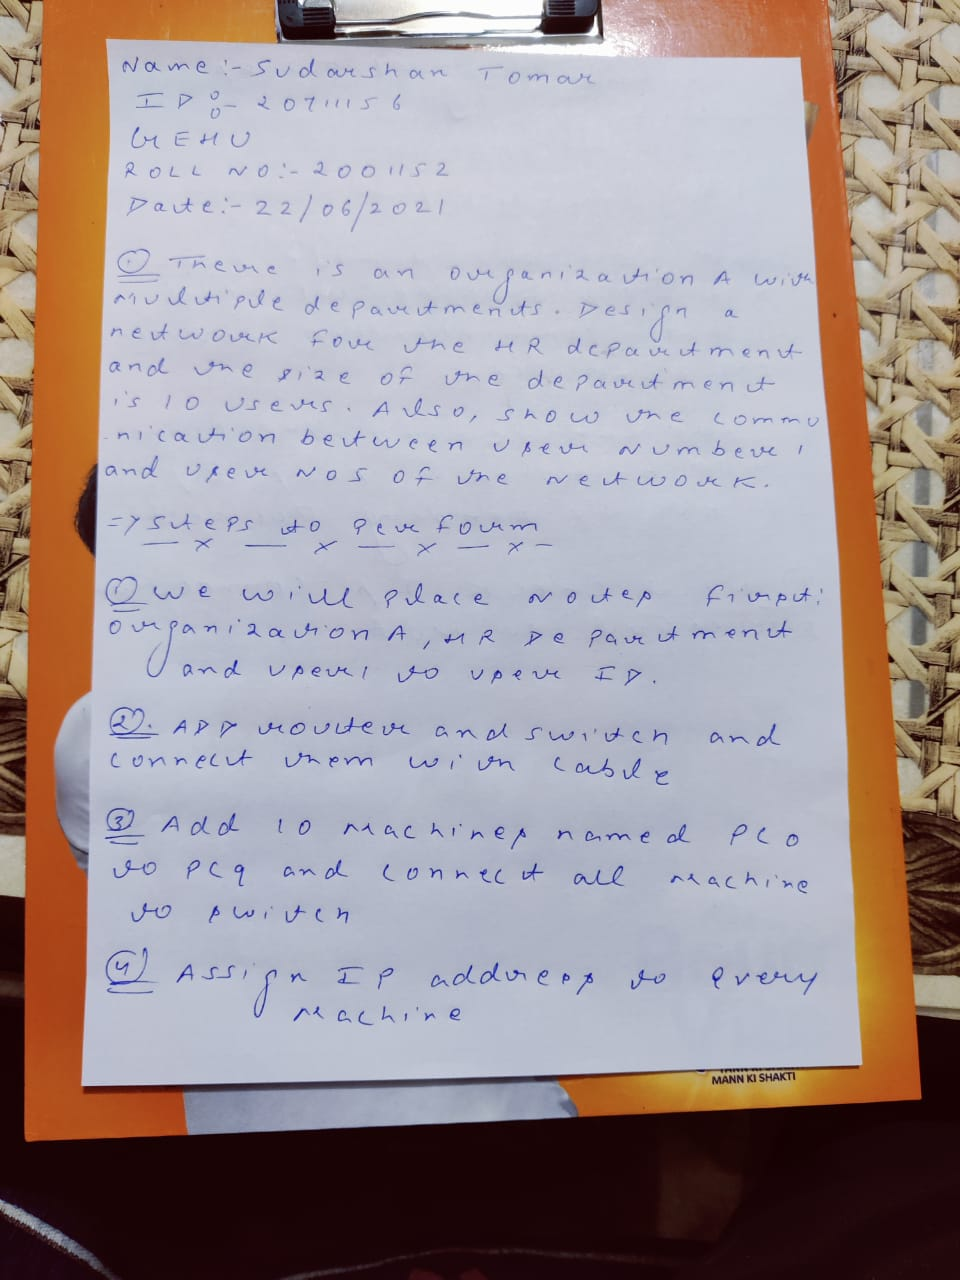 Name:- Sudarshan Tomar
ID:- 20711156
GEHU
ROLL NO:- 2001152
Date:- 22/06/2021
① There is an organization A with
multiple departments. Design a
network for the HR department
and the size of the department
is 10 users. Also, show the commu
nication between user number 1
and user no 5 of the network.
=> Steps to perform
① We will place notes first:
organization A, HR Department
and user1 to user 10.
②. ADD router and switch and
connect them with cable
③ Add 10 machines named PC0
to PC9 and connect all machine
to switch
④ Assign IP address to every
machine
MANN KI SHAKTI